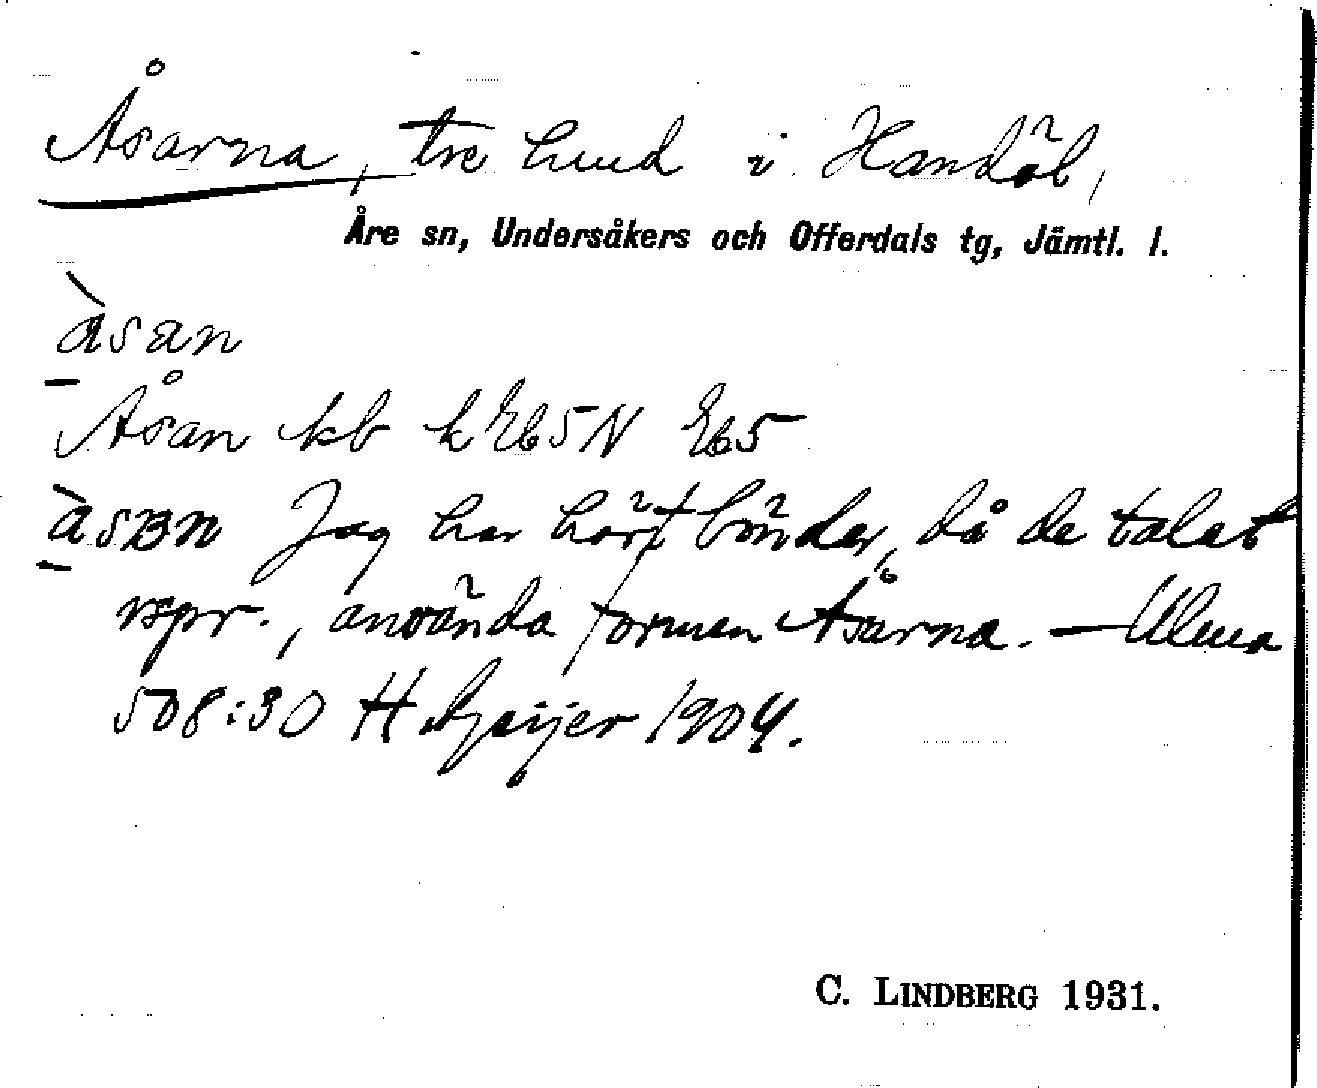 Åsarna, tre hmd i Handöl,
Åre sn, Undersåkers och Offerdals tg, Jämtl. l.
àsan
Åsan kb k E65N E65
àsBn Jag har hört bönder, då de talat
rspr., använda formen Åsarna. — Ulma
508:30 H Geijer 1904.
C. LINDBERG 1931.